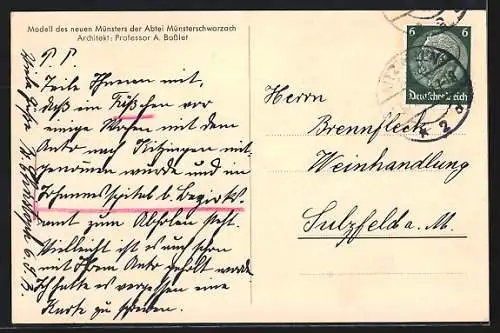 Modell des neuen Münsters der Abtei Münsterschwarzach
Architekt: Professor A. Boßlet
P. P.
Teile Ihnen mit,
daß ein Fäßchen vor
einige Wochen mit dem
Auto nach Kitzingen mit-
genommen wurde und im
Johannesspital b. Bezirks-
amt zum Abholen steht.
Vielleicht ist es nun schon
mit Ihrem Auto geholt worden
Ich hatte es vergessen eine
Karte zu schreiben.
6 6
Deutsches Reich
Herrn
Brennfleck
Weinhandlung
Sulzfeld a. M.